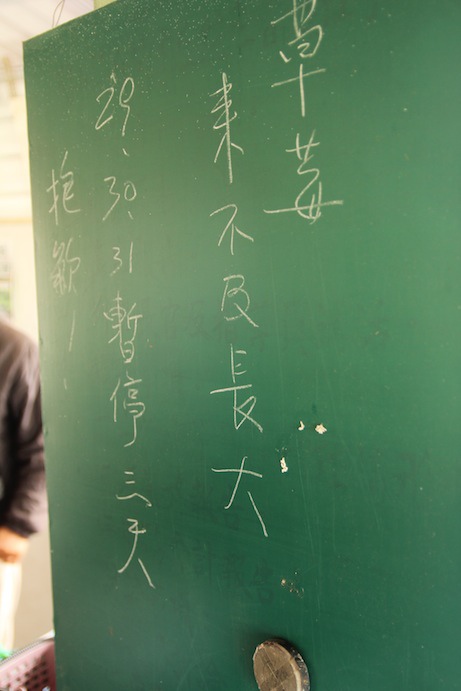 草莓
來不及長大
29、30、31暫停三天
抱歉!